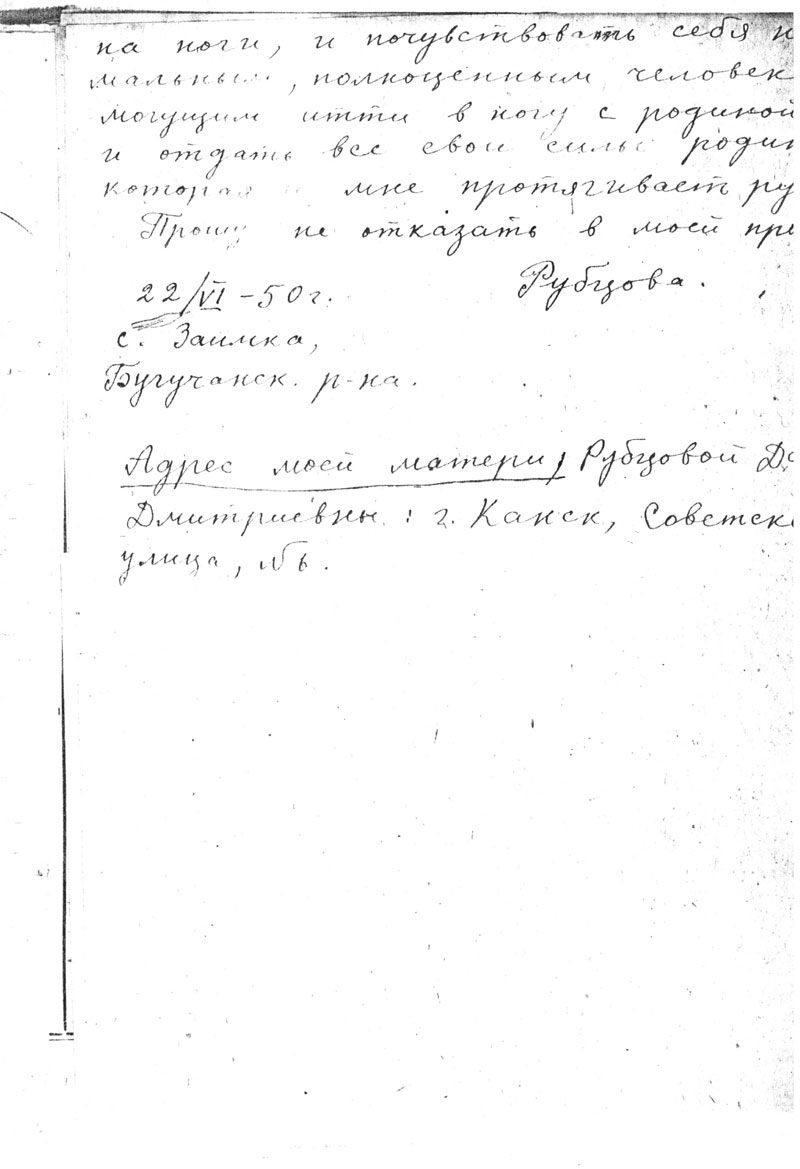 на ноги, и почувствовать себя н
мальным, полноценным человек
могущим итти в ногу с родиной
и отдать все свои силы родин
которая мне протягивает ру
Прошу не отказать в моей про
22/VI - 50 г.
Рубцова.
с. Заимка,
Бугучанск. р-на.
Адрес моей матери, Рубцовой
Дмитриевны : г. Канск, Советск
улица,